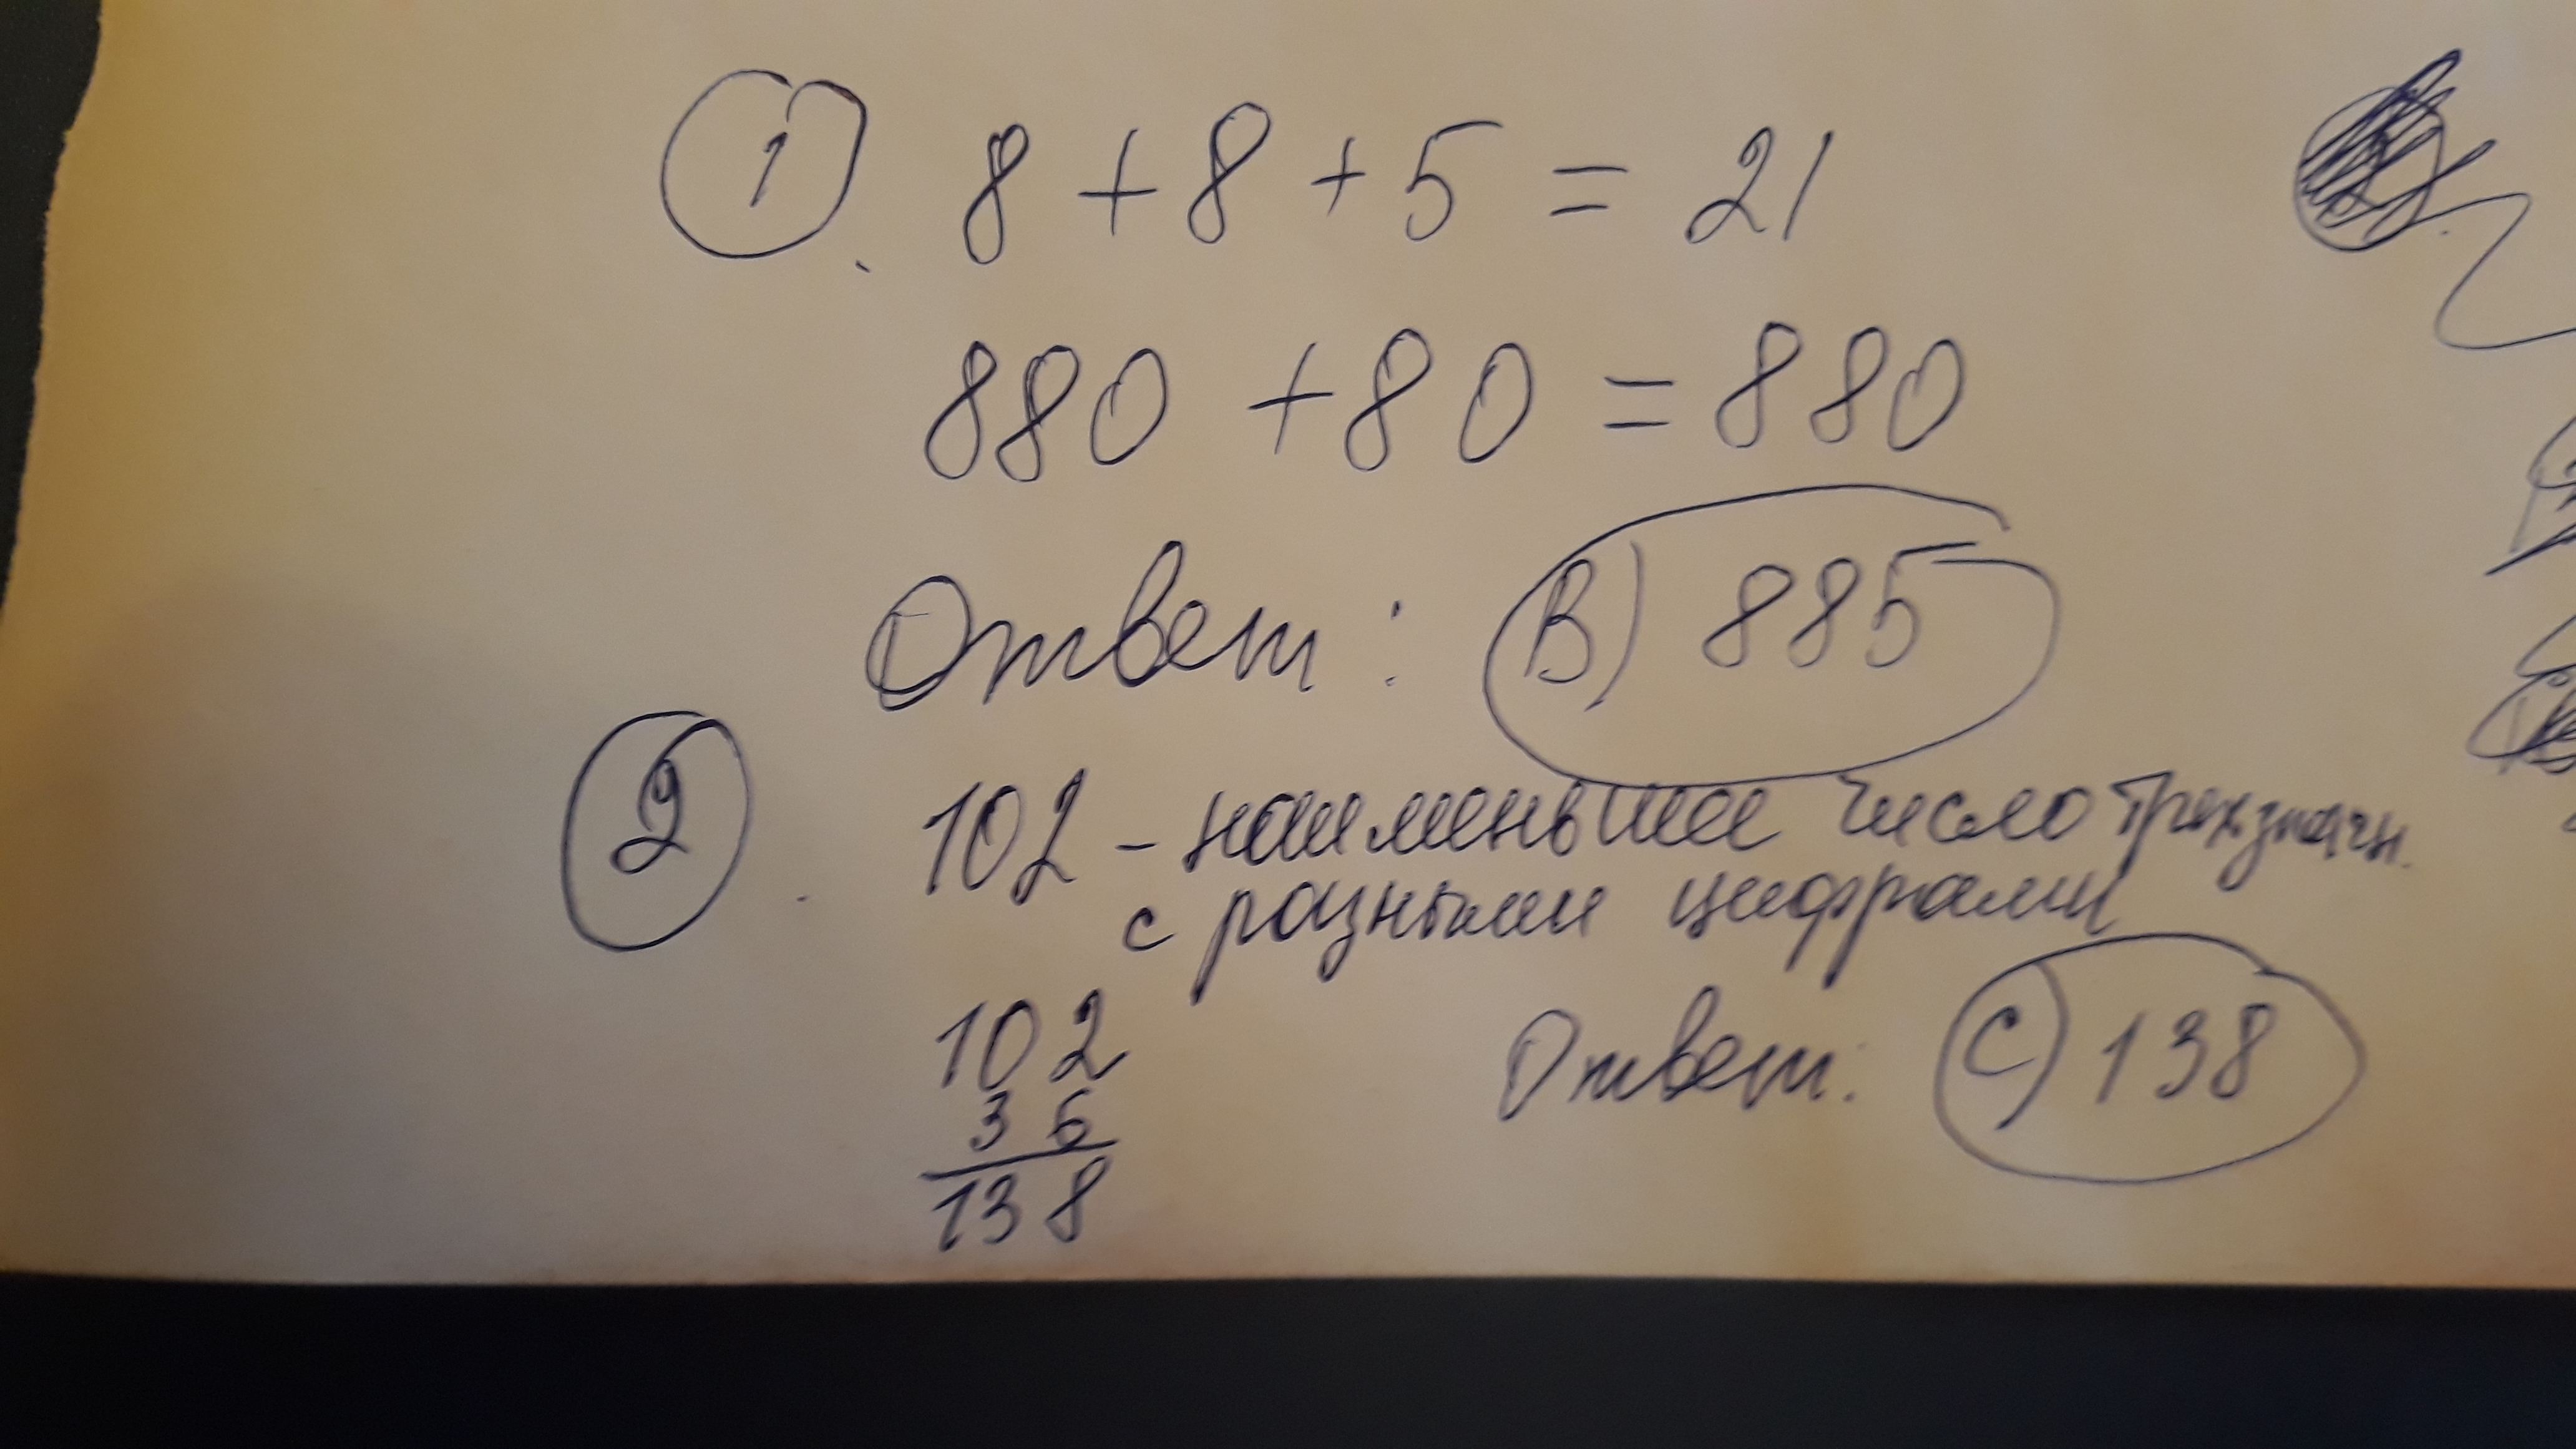 1. 8 + 8 + 5 = 21
880 + 80 = 880
Ответ: В) 885
2. 102 - наименьшее число трехзначн.
с разными цифрами
102
36
138
Ответ: С) 138